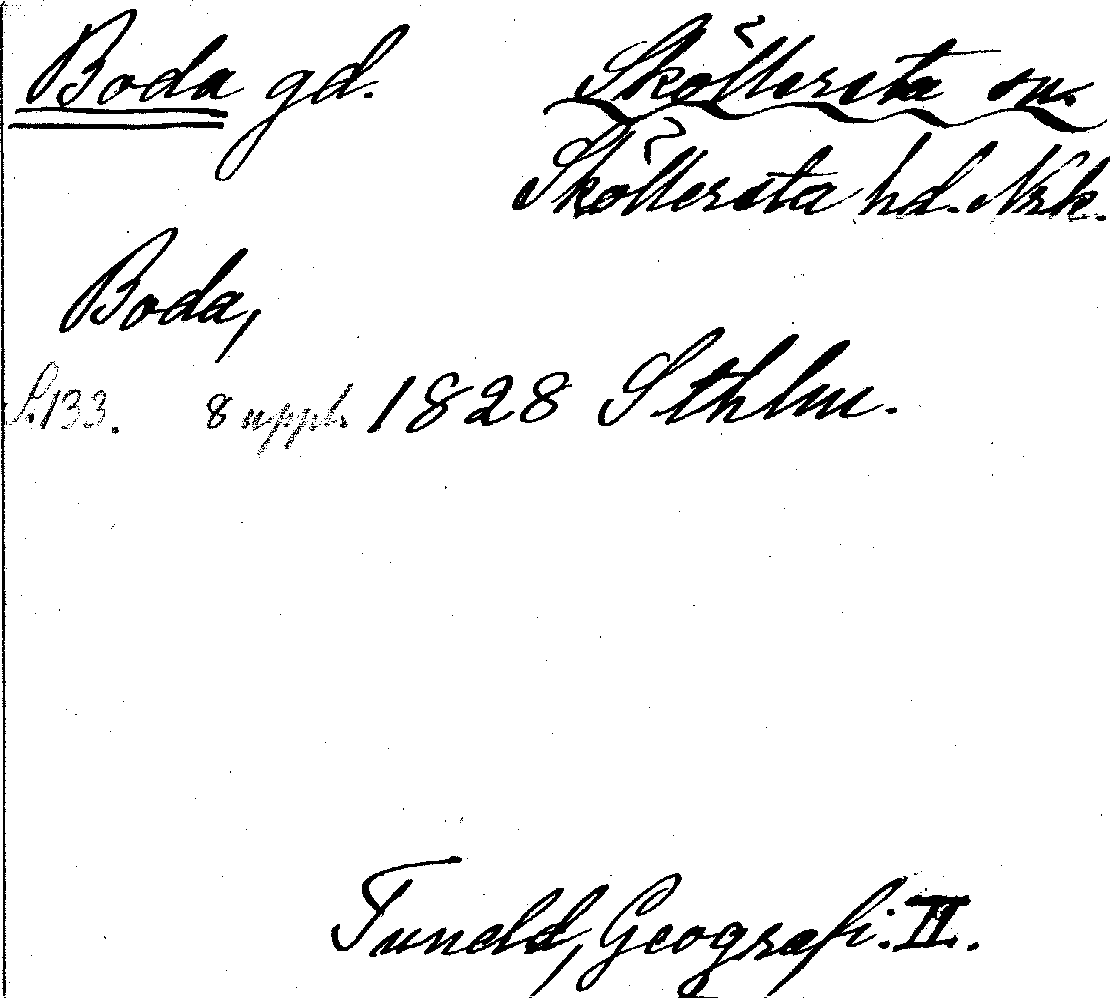 Boda gd. Sköllersta sn.
Sköllersta hd. Nrk.
Boda,
S. 133. 8 uppl. 1828 Sthlm.
Tuneld, Geografi. II.